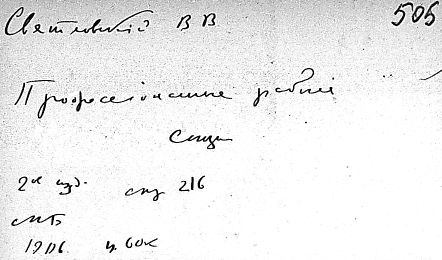 Святловский В В 505
Профессиональные рабочие
Союзы
2ое изд. стр 216
СПБ
1906. ц 60к